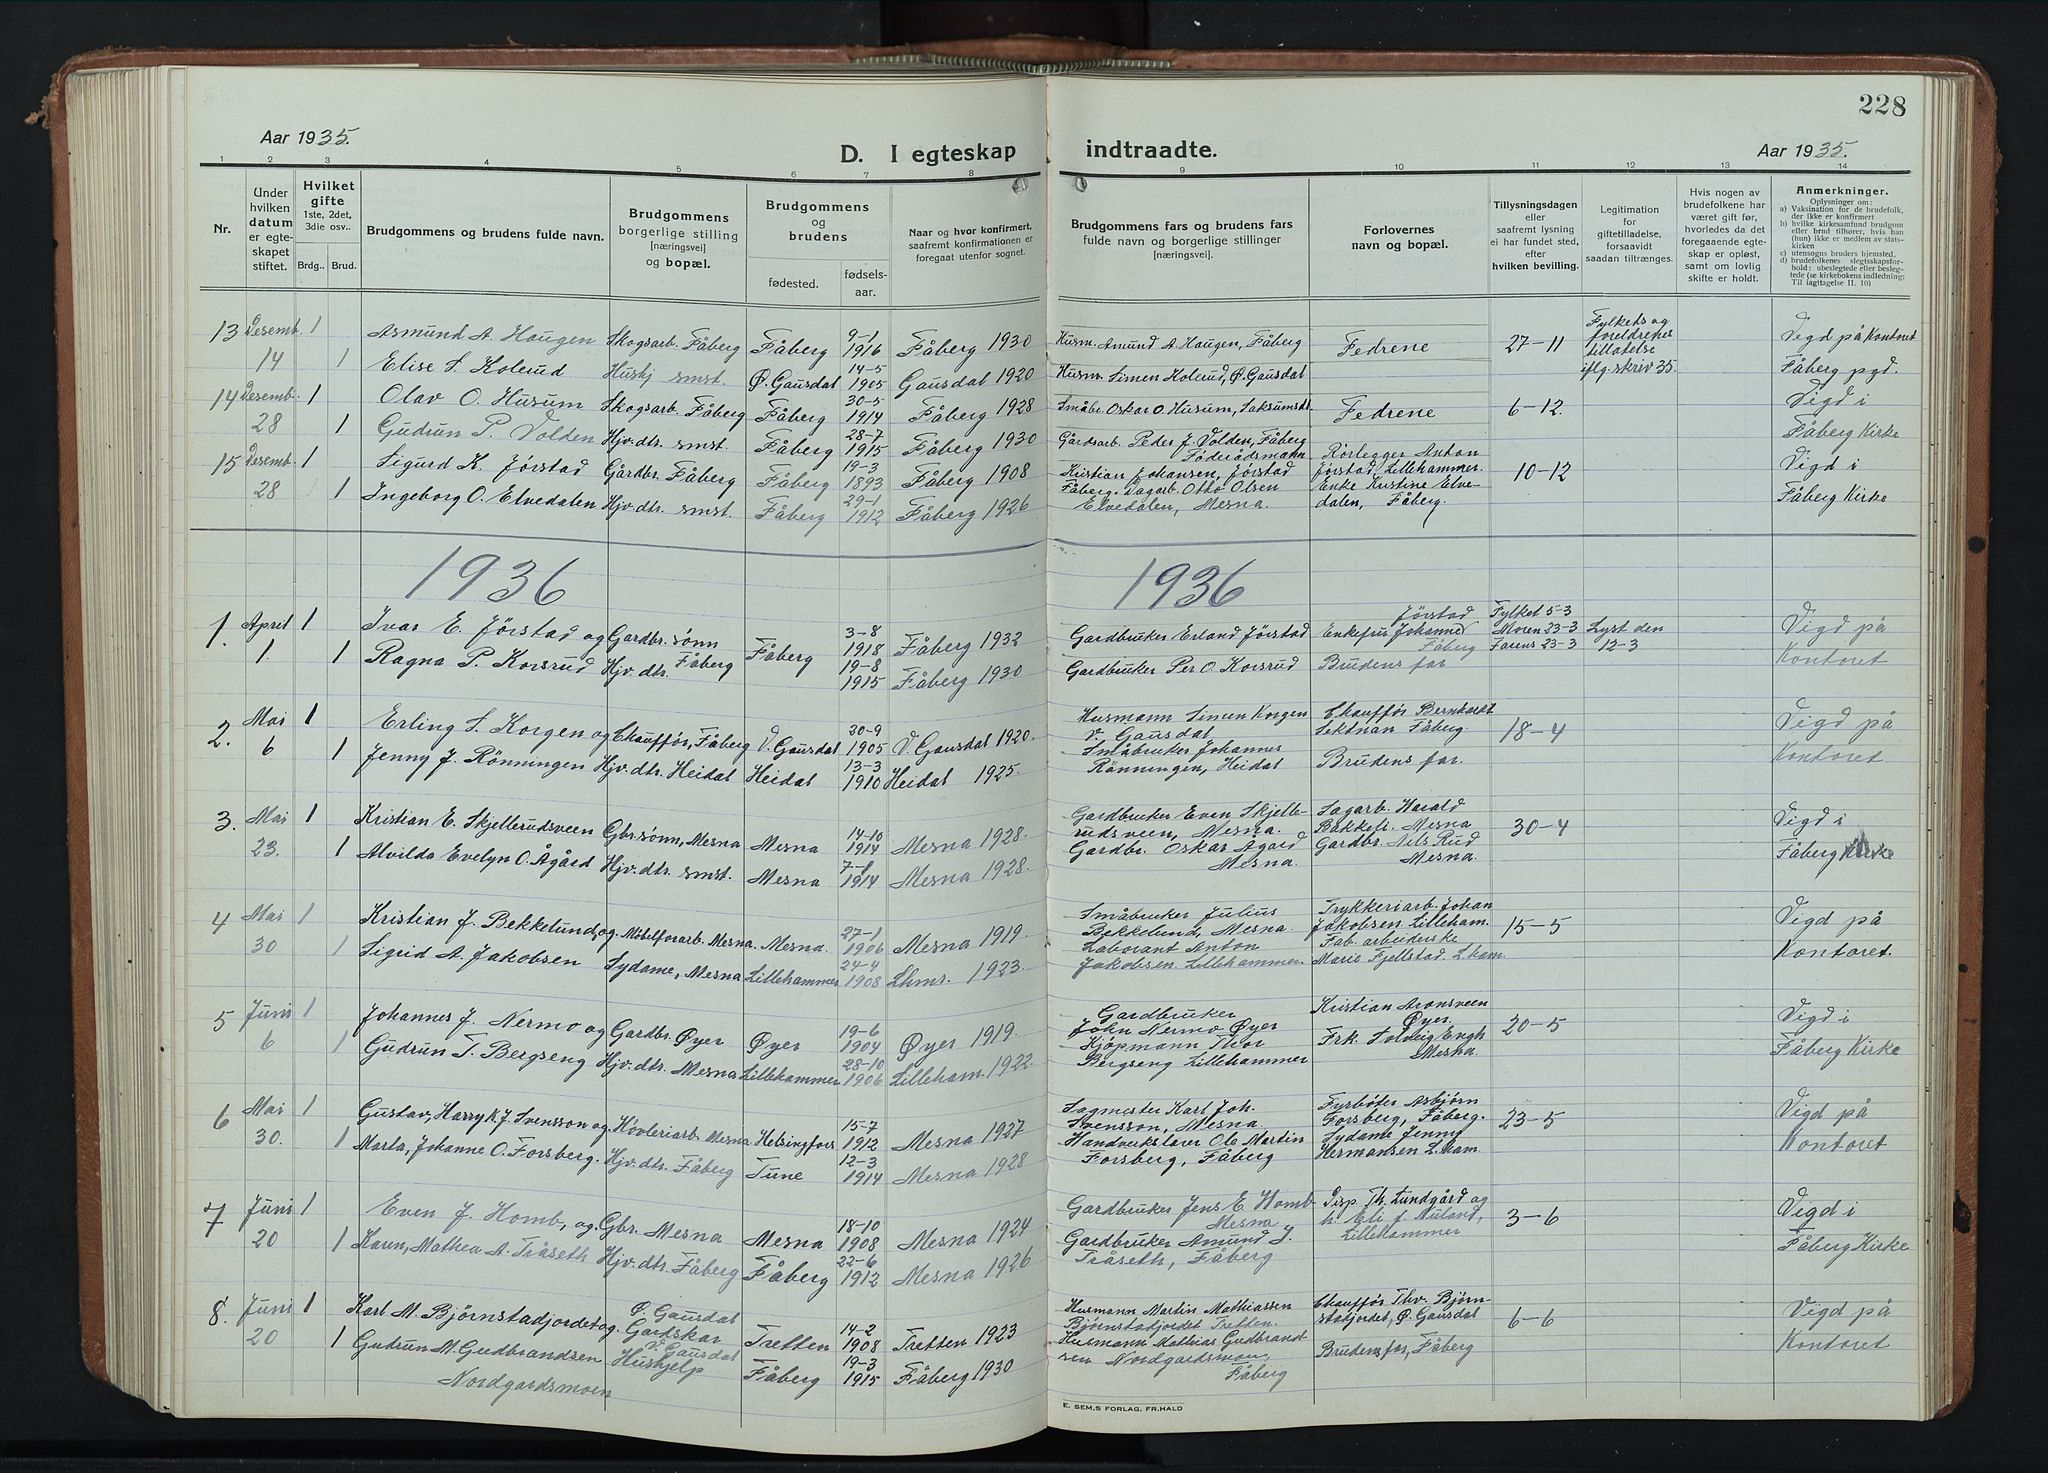 228
Aar 1935.
D. I egteskap
indtraadte.
Aar 1935.
1 2 3 4 5 6 7 8 9 10 11 12 13 14
Nr.
Under hvilken datum er egteskapet stiftet.
Hvilket gifte 1ste, 2det, 3die osv..
Brdg.. Brud.
Brudgommens og brudens fulde navn.
Brudgommens borgerlige stilling [næringsvei] og bopæl.
Brudgommens og brudens
fødested. fødselsaar.
Naar og hvor konfirmert, saafremt konfirmationen er foregaat utenfor sognet.
Brudgommens fars og brudens fars fulde navn og borgerlige stillinger [næringsvei].
Forlovernes navn og bopæl.
Tillysningsdagen eller saafremt lysning ei har fundet sted, efter hvilken bevilling.
Legitimation for giftetilladelse, forsaavidt saadan tiltrænges.
Hvis nogen av brudefolkene har været gift før, hvorledes da det foregaaende egteskap er opløst, samt om lovlig skifte er holdt.
Anmerkninger.
Oplysninger om:
a) Vaksination for de brudefolk, der ikke er konfirmert
b) hvilke kirkesamfund brudgom eller brud tilhører, hvis han (hun) ikke er medlem av statskirken
c) utensogns bruders hjemsted.
d) brudefolkenes slegtsskapsforhold: ubeslegtede eller beslegtede (se kirkebokens indledning: Til iagttagelse II. 10)
13 Desemb. 1 Asmund A. Haugen Skogsarb. Fåberg Fåberg 9-1 1916 Fåberg 1930 Husm. Amund A. Haugen, Fåberg Fedrene 27-11 Fylkets og foreldrenes tillatelse iflg. skriv 35. Vigd på Kontoret
14 1 Elise S. Kolerud Hushj smst. Ø. Gausdal 14-5 1905 Gausdal 1920 Husm. Simen Kolerud, Ø. Gausdal Fåberg pgd.
14 Desemb. 1 Olav O. Husum Skogsarb. Fåberg Fåberg 30-5 1914 Fåberg 1928 Småbr. Oskar O. Husum, Saksumsd. Fedrene 6-12. Vigd i
28 1 Gudrun P. Volden Hjv. dtr. smst. Fåberg 28-7 1915 Fåberg 1930 Gårdsarb. Peder J. Volden, Fåberg Fåberg Kirke
15 Desemb. 1 Sigurd K. Jørstad Gårdbr. Fåberg Fåberg 19-3 1893 Fåberg 1908 Føderådsmann Kristian Johansen, Jørstad Fåberg. Rørlegger Anton Jørstad, Lillehammer. 10-12 Vigd i
28 1 Ingeborg O. Elvedalen Hjv. dtr. smst. Fåberg 29-1 1912 Fåberg 1926 Dagarb. Otto Olsen Elvedalen, Mesna. Enke Kristine Elvedalen, Fåberg. Fåberg Kirke
1936
1936
1. April 1 Ivar E. Jørstad og Gardbr. sønn Fåberg 3-8 1918 Fåberg 1932 Gardbruker Erland Jørstad Enkefru Johanne Jørstad Fåberg Fylket 5-3 Moren 23-3 Farens 23-3 Lyst den 12-3 Vigd på
1. 1 Ragna P. Korsrud Hjv. dtr. Fåberg 19-8 1915 Fåberg 1930 Gardbruker Per O. Korsrud Brudens far Kontoret
2. Mai 1 Erling S. Korgen og Chauffør, Fåberg V. Gausdal 20-9 1905 V. Gausdal 1920. Husmann Simen Korgen v. Gausdal Chauffør Bernhardt Fåberg. 18-4 Vigd på
6 1 Jenny J. Rönningen Hjv. dtr. Heidal Heidal 13-3 1910 Heidal 1925. Småbruker Johannes Rönningen, Heidal Brudens far. Kontoret
3. Mai 1 Kristian E. Skjellerudsveen Gbr. sønn, Mesna Mesna 14-10 1914 Mesna 1928. Gardbruker Even Skjellerudsveen, Mesna. Sagarb. Harald Bakkeli. Mesna 30-4 Vigd i
23. 1 Alvilda Evelyn O. Ågård Hjv. dtr. smst. Mesna 7-1 1914 Mesna 1928. Gardbr. Oskar Ågård Mesna. Gardbr. Nils Rud Mesna. Fåberg Kirke
4 Mai 1 Kristian J. Bekkelund, og Møbelforarb. Mesna. Mesna. 27-1 1906 Mesna 1919. Småbruker Julius Bekkelund, Mesna. Trykkeriarb. Johan Jakobsen Lilleham. 15-5 Vigd på
30 1 Sigrid A. Jakobsen Sydame, Mesna Lillehammer 24-4 1908 Lhmr. 1923. Laborant Anton Jakobsen Lillehammer. Fab. arbeiderske Marie Fjellstad L.ham. Kontoret.
5 Juni 1 Johannes J. Nermo og Gardbr. Øyer Øyer 19-6 1904 Øyer 1919. Gardbruker John Nermo Øyer Kristian Aronsveen Øyer. 20-5 Vigd i
6 1 Gudrun T. Bergseng Hjv. dtr. Mesna Lillehammer 28-10 1906 Lilleham. 1922. Kjöpmann Thor Bergseng Lillehammer Frk. Solveig Engh Mesna. Fåberg Kirke
6 Mai 1 Gustav, Harry K. J. Svensson og Høvleriarb. Mesna Helsingfors 15-7 1912 Mesna 1927 Sagmester Karl Joh. Svensson, Mesna Fyrbøter Asbjörn Forsberg, Fåberg. 23-5 Vigd på
30. 1 Marta, Johanne O. Forsberg. Hjv. dtr. Fåberg Tune 12-3 1914 Mesna 1928 Handverkslærer Ole Martin Forsberg, Fåberg Sydame Jenny Hermansen L.ham. Kontoret
7 Juni 1 Even J. Homb, og Gbr. Mesna Mesna 18-10 1908 Mesna 1924 Gardbruker Jens E. Homb Mesna Disp Th. Lundgård og 3-6 Vigd i
20 1 Karen, Mathea A. Tråseth Hjv. dtr. Fåberg Fåberg 22-6 1912 Mesna 1926 Gardbruker Amund J. Tråseth, Fåberg Lillehammer Fåberg Kirke
8. Juni 1 Karl M. Bjørnstadjordet og Ø. Gausdal Gardskar Tretten 14-2 1908 Tretten 1923 Husmann Martin Mathiassen Bjørnstadjordet Tretten. Chauffør Thv. Bjørnstadjordet, Ø. Gausdal 6-6 Vigd på
20 1 Gudrun M. Gudbrandsen Nordgardsmoen V. Gausdal Hushjelp Fåberg 19-3 1915 Fåberg 1930 Husmann Mathias Gudbrandsen Nordgardsmoen, Fåberg Brudens far, Fåberg Kontoret
E. SEM,S FORLAG, FR.HALD